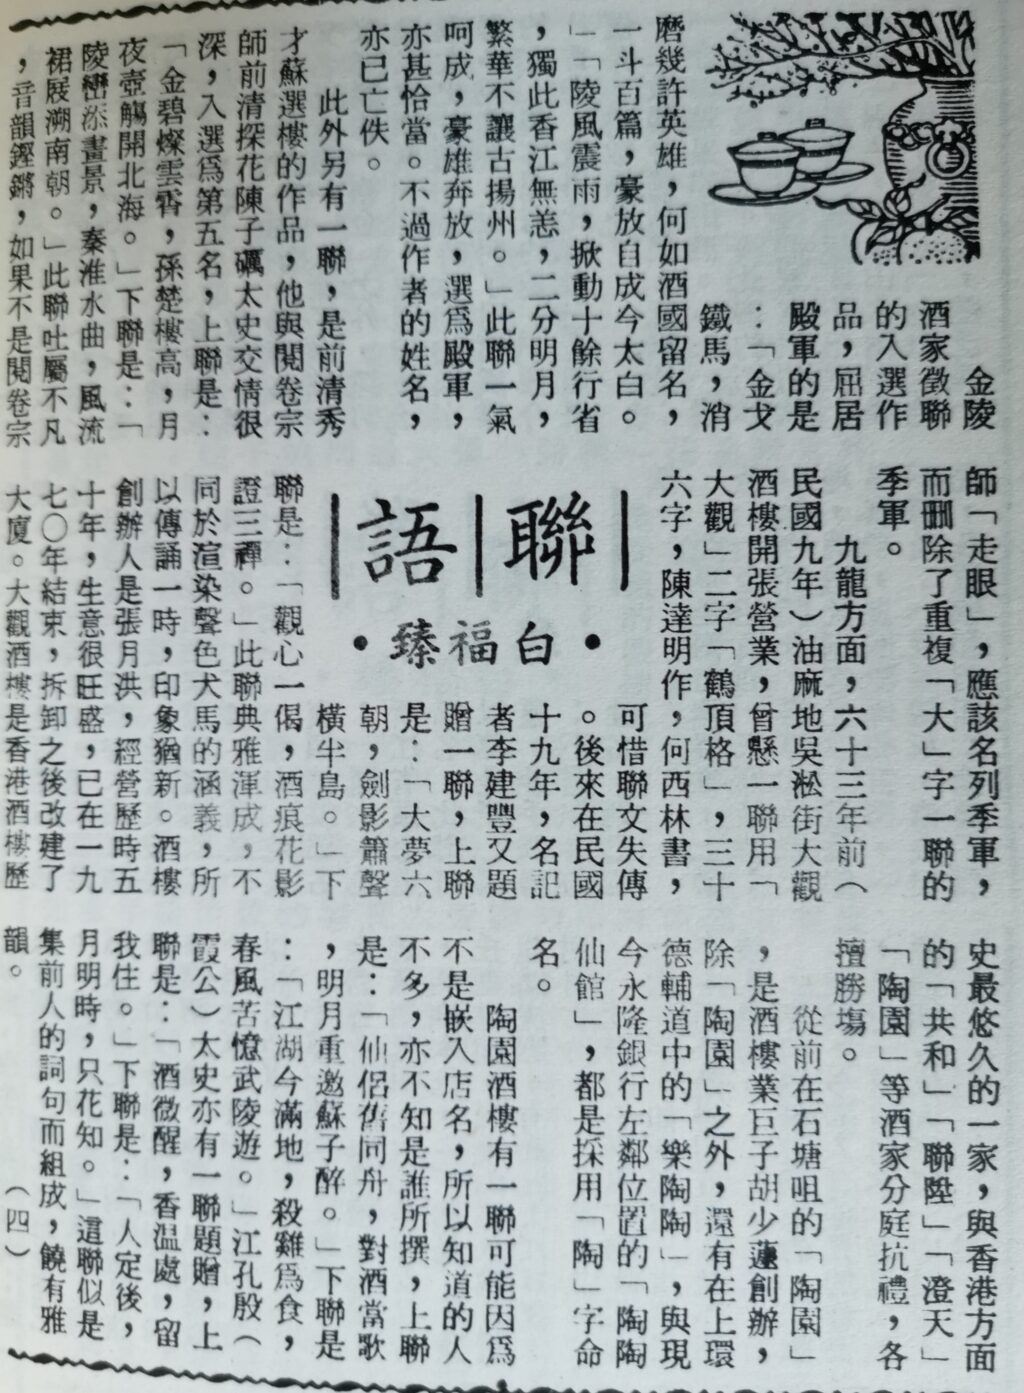 聯語
•白福臻•
金陵
酒家徵聯
的入選作
品，屈居
殿軍的是
：「金戈
鐵馬，消
磨幾許英雄，何如酒國留名，
一斗百篇，豪放自成今太白。
」「陵風震雨，掀動十餘行省
，獨此香江無恙，二分明月，
繁華不讓古揚州。」此聯一氣
呵成，豪雄奔放，選爲殿軍，
亦甚恰當。不過作者的姓名，
亦已亡佚。
此外另有一聯，是前清秀
才蘇選樓的作品，他與閱卷宗
師前清探花陳子礪太史交情很
深，入選爲第五名，上聯是：
「金碧燦雲霄，孫楚樓高，月
夜壺觴開北海。」下聯是：「
陵巒添畫景，秦淮水曲，風流
裙屐溯南朝。」此聯吐屬不凡
，音韻鏗鏘，如果不是閱卷宗
師「走眼」，應該名列季軍，
而删除了重複「大」字一聯的
季軍。
九龍方面，六十三年前（
民國九年）油麻地吳淞街大觀
酒樓開張營業，曾懸一聯用「
大觀」二字「鶴頂格」，三十
六字，陳達明作，何西林書，
可惜聯文失傳
。後來在民國
十九年，名記
者李建豐又題
贈一聯，上聯
是：「大夢六
朝，劍影簫聲
橫半島。」下
聯是：「觀心一偈，酒痕花影
證三禪。」此聯典雅渾成，不
同於渲染聲色犬馬的涵義，所
以傳誦一時，印象猶新。酒樓
創辦人是張月洪，經營歷時五
十年，生意很旺盛，已在一九
七〇年結束，拆卸之後改建了
大廈。大觀酒樓是香港酒樓歷
史最悠久的一家，與香港方面
的「共和」「聯陞」「澄天」
「陶園」等酒家分庭抗禮，各
擅勝塲。
從前在石塘咀的「陶園」
，是酒樓業巨子胡少蓮創辦，
除「陶園」之外，還有在上環
德輔道中的「樂陶陶」，與現
今永隆銀行左鄰位置的「陶陶
仙館」，都是採用「陶」字命
名。
陶園酒樓有一聯可能因爲
不是嵌入店名，所以知道的人
不多，亦不知是誰所撰，上聯
是：「仙侶舊同舟，對酒當歌
，明月重邀蘇子醉。」下聯是
：「江湖今滿地，殺雞爲食，
春風苦憶武陵遊。」江孔殷（
霞公）太史亦有一聯題贈，上
聯是：「酒微醒，香温處，留
我住。」下聯是：「人定後，
月明時，只花知。」這聯似是
集前人的詞句而組成，饒有雅
韻。
（四）